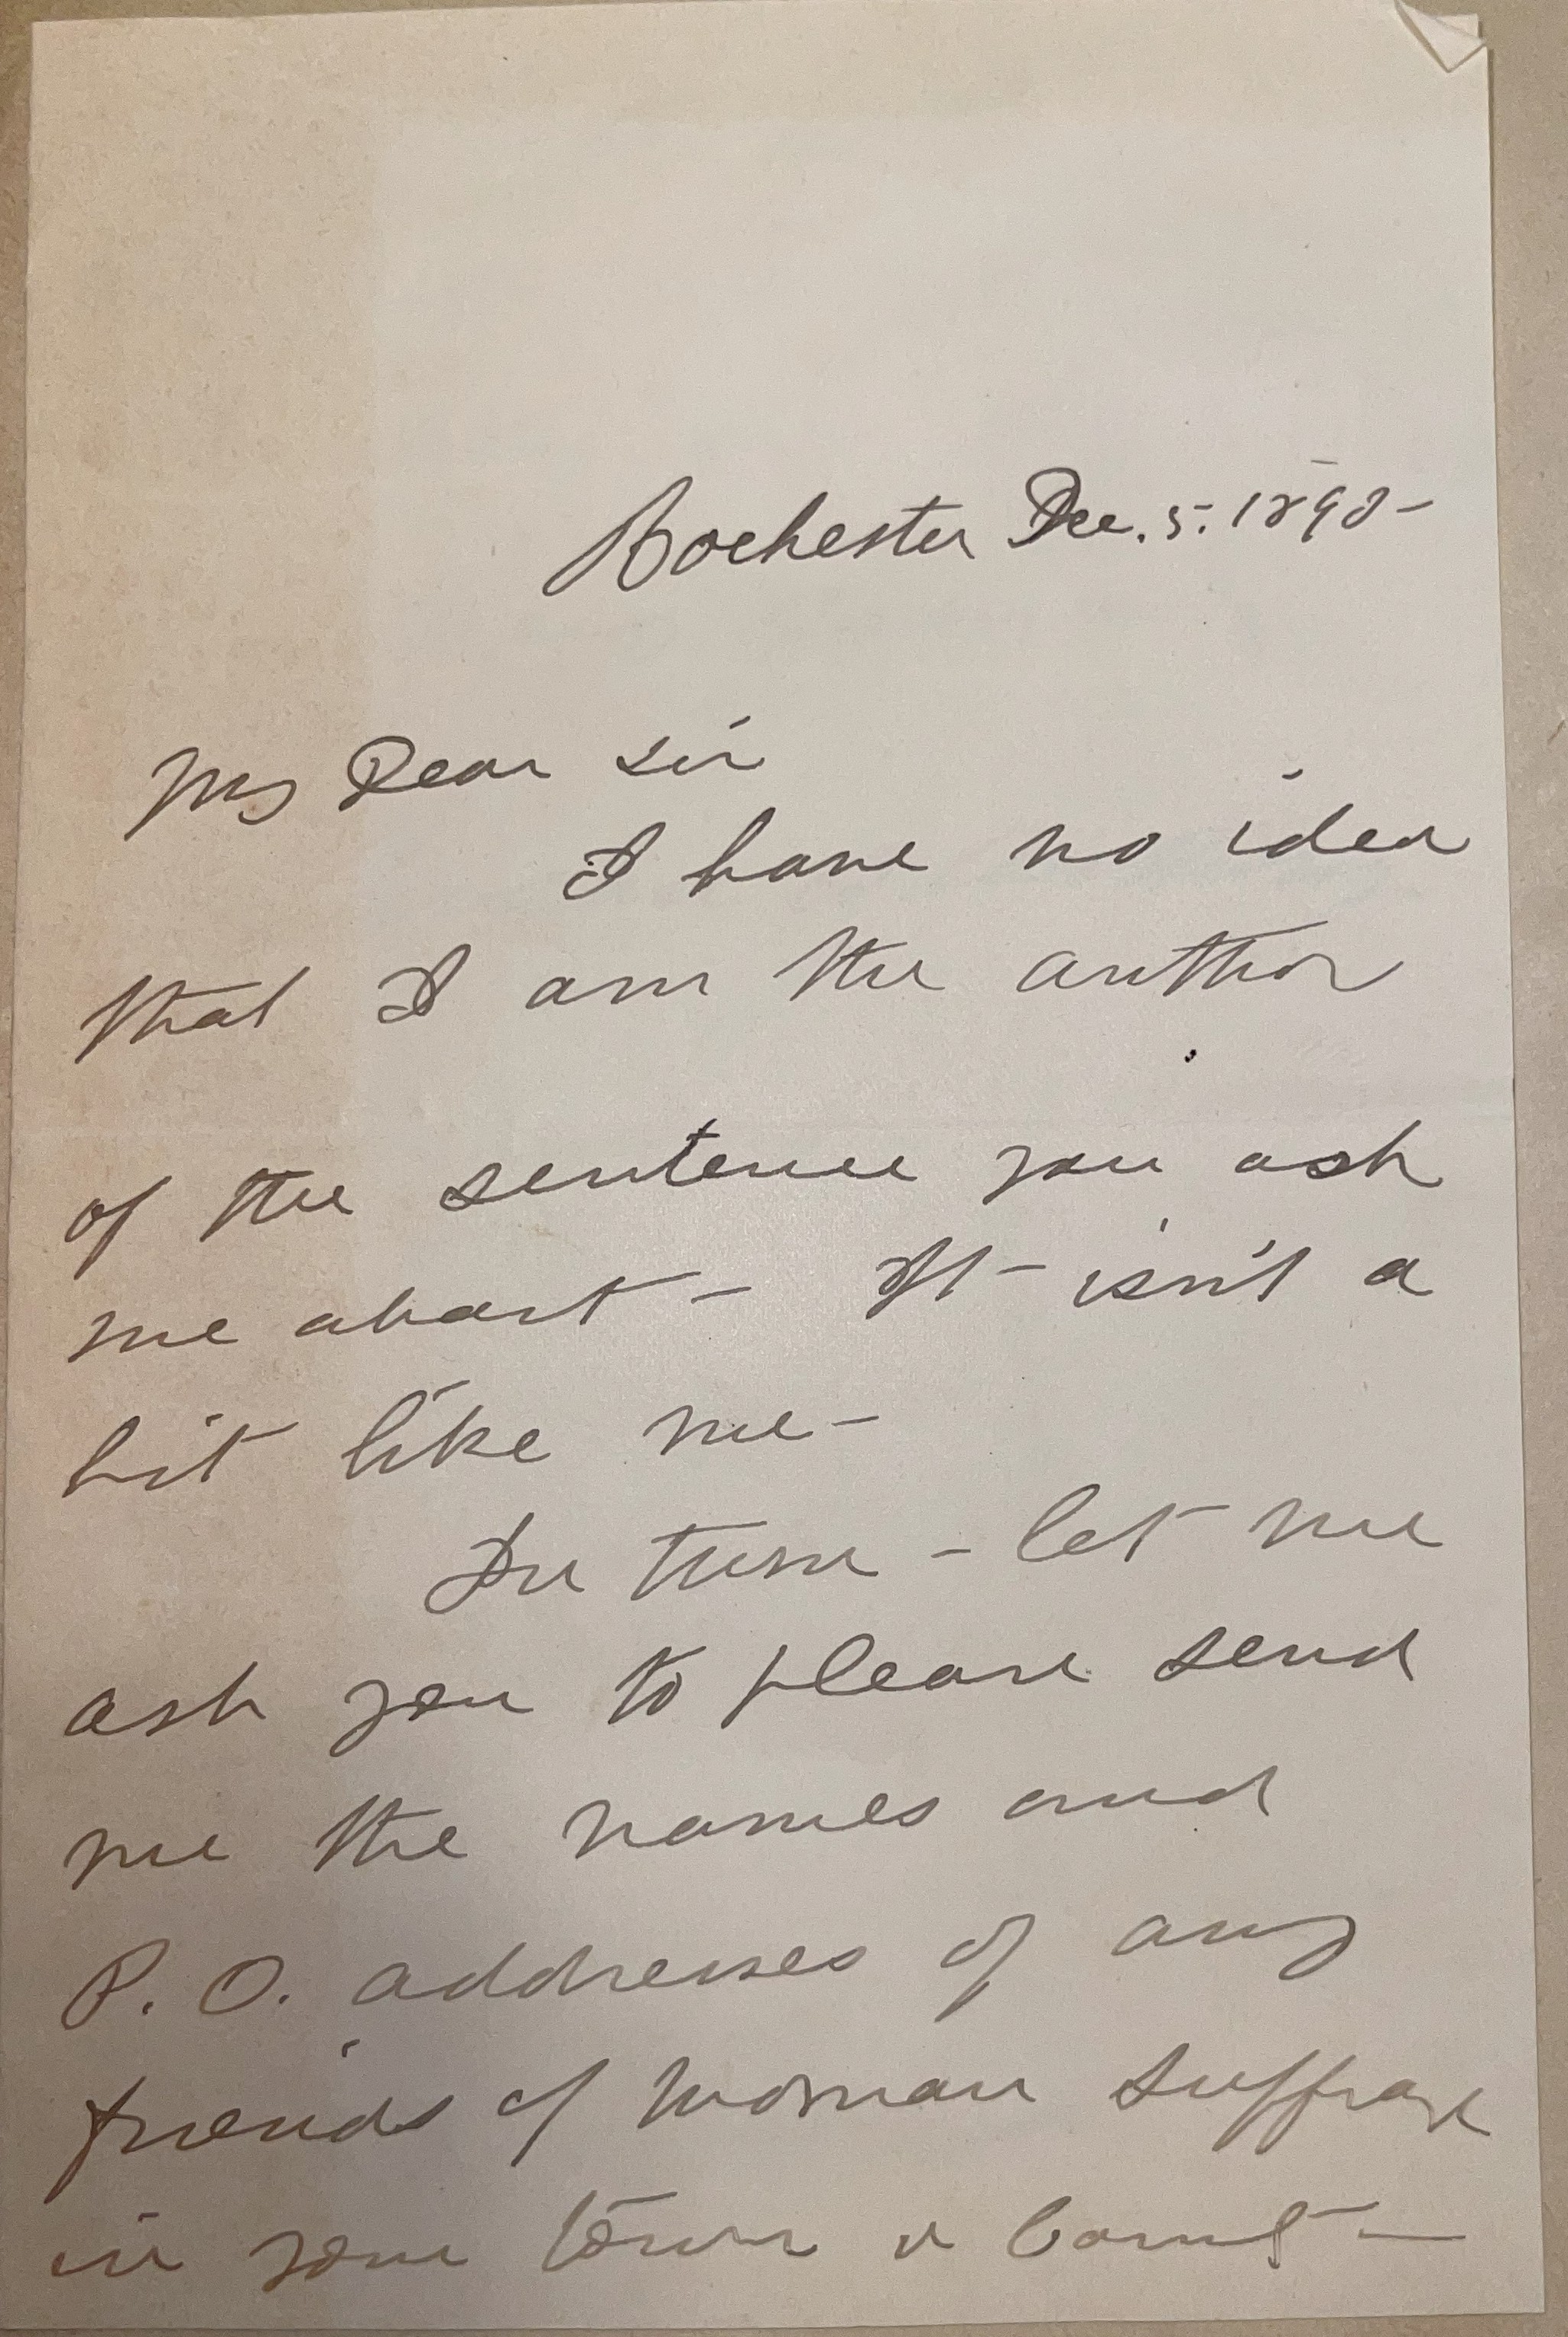 Rochester Dec. 5. 1893-
My Dear Sir
I have no idea
that I am the author
of the sentence you ask
me about - It isn't a
bit like me -
In turn - let me
ask you to please send
me the names and
P. O. addresses of any
friends of woman suffrage
in your town or County -